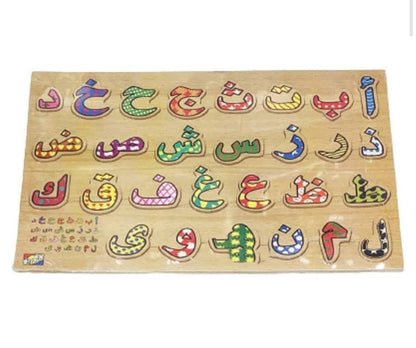 أ ب ت ث ج ح خ د
ذ ر ز س ش ص ض
ط ظ ع غ ف ق ك
ل م ن هـ و ي